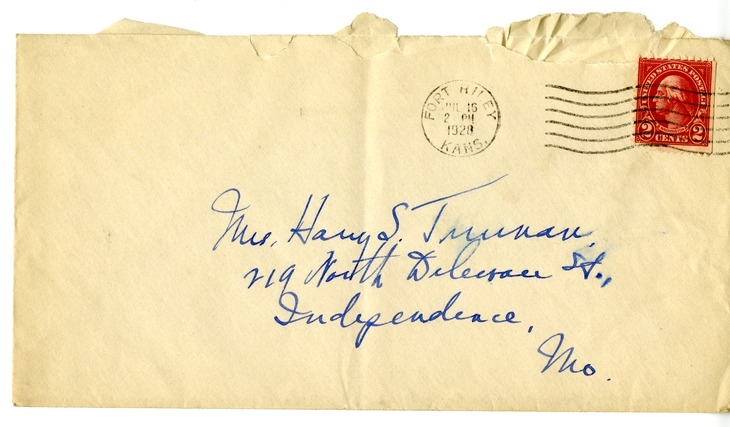 FORT RILEY
JUL 16
2 PM
1928
KANS.
UNITED STATES POSTAGE
2 CENTS 2
Mrs. Harry S. Truman,
219 North Delaware St.,
Independence,
Mo.